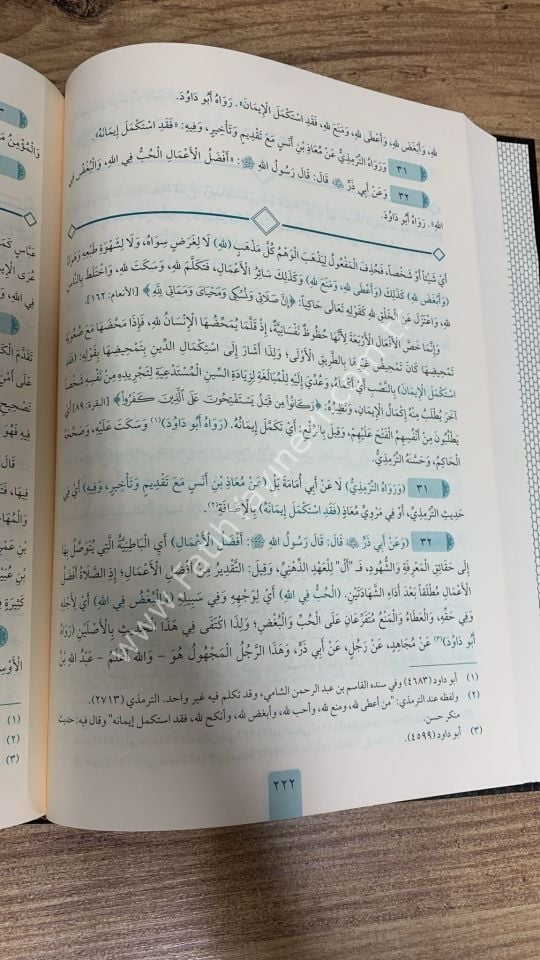 لِلهِ، وَأَبْغَضَ لِلهِ، وَأَعْطَى لِلهِ، وَمَنَعَ لِلهِ، فَقَدِ اسْتَكْمَلَ الْإِيمَانَ». رَوَاهُ أَبُو دَاوُدَ.
٣١ وَرَوَاهُ التِّرْمِذِيُّ عَنْ مُعَاذِ بْنِ أَنَسٍ مَعَ تَقْدِيمٍ وَتَأْخِيرٍ، وَفِيهِ: «فَقَدِ اسْتَكْمَلَ إِيمَانَهُ».
٣٢ وَعَنْ أَبِي ذَرٍّ ﷺ قَالَ: قَالَ رَسُولُ اللهِ ﷺ: «أَفْضَلُ الْأَعْمَالِ الْحُبُّ فِي اللهِ، وَالْبُغْضُ فِي
اللهِ». رَوَاهُ أَبُو دَاوُدَ.
أَيْ شَيْئاً أَوْ شَخْصاً، فَحُذِفَ الْمَفْعُولُ لِيَذْهَبَ الْوَهْمُ كُلَّ مَذْهَبٍ (لِلهِ) لَا لِغَرَضٍ سِوَاهُ، وَلَا لِشَهْوَةِ طَبْعِهِ وَهَوَاهُ
(وَأَبْغَضَ لِلهِ) كَذَلِكَ (وَأَعْطَى لِلهِ، وَمَنَعَ لِلهِ) وَكَذَلِكَ سَائِرُ الْأَعْمَالِ، فَتَكَلَّمَ لِلهِ، وَسَكَتَ لِلهِ، وَاخْتَلَطَ بِالنَّاسِ
لِلهِ، وَاعْتَزَلَ عَنِ الْخَلْقِ لِلهِ كَقَوْلِهِ تَعَالَى حَاكِياً: ﴿إِنَّ صَلَاتِي وَنُسُكِي وَمَحْيَايَ وَمَمَاتِي لِلَّهِ﴾ [الأنعام: ١٦٢].
وَإِنَّمَا خَصَّ الْأَفْعَالَ الْأَرْبَعَةَ لِأَنَّهَا حُظُوظٌ نَفْسَانِيَّةٌ، إِذْ قَلَّمَا يُمَحِّضُهَا الْإِنْسَانُ لِلهِ، فَإِذَا مَحَّضَهَا مَعَ صُعُوبَةِ
تَمْحِيضِهَا كَانَ تَمْحِيضُ غَيْرِهَا بِالطَّرِيقِ الْأَوْلَى؛ وَلِذَا أَشَارَ إِلَى اسْتِكْمَالِ الدِّينِ بِتَمْحِيضِهَا بِقَوْلِهِ: (فَقَدِ
اسْتَكْمَلَ الْإِيمَانَ) بِالنَّصْبِ أَيْ أَكْمَلَهُ، وَعُدِّيَ إِلَيْهِ لِلْمُبَالَغَةِ لِزِيَادَةِ السِّينِ الْمُسْتَدْعِيَةِ لِتَجْرِيدِهِ مِنْ نَفْسِهِ شَخْصاً
آخَرَ يُطْلَبُ مِنْهُ إِكْمَالُ الْإِيمَانِ، وَنَظِيرُهُ: ﴿وَكَانُوا مِن قَبْلُ يَسْتَفْتِحُونَ عَلَى الَّذِينَ كَفَرُوا﴾ [البقرة: ٨٩] أَيْ
يَطْلُبُونَ مِنْ أَنْفُسِهِمُ الْفَتْحَ عَلَيْهِمْ، وَقِيلَ بِالرَّفْعِ: أَيْ تَكَمَّلَ إِيمَانُهُ. (رَوَاهُ أَبُو دَاوُدَ)(١) وَسَكَتَ عَلَيْهِ، وَصَحَّحَهُ
الْحَاكِمُ، وَحَسَّنَهُ التِّرْمِذِيُّ.
٣١ (وَرَوَاهُ التِّرْمِذِيُّ) لَا عَنْ أَبِي أُمَامَةَ بَلْ (عَنْ مُعَاذِ بْنِ أَنَسٍ مَعَ تَقْدِيمٍ وَتَأْخِيرٍ، وَفِيهِ) أَيْ فِي
حَدِيثِ التِّرْمِذِيِّ، أَوْ فِي مَرْوِيِّ مُعَاذٍ (فَقَدِ اسْتَكْمَلَ إِيمَانَهُ) بِالْإِضَافَةِ(٢).
٣٢ (وَعَنْ أَبِي ذَرٍّ ﷺ قَالَ: قَالَ رَسُولُ اللهِ ﷺ: أَفْضَلُ الْأَعْمَالِ) أَيِ الْبَاطِنِيَّةِ الَّتِي يُتَوَصَّلُ بِهَا
إِلَى حَقَائِقِ الْمَعْرِفَةِ وَالشُّهُودِ، فَـ"أَلْ" لِلْعَهْدِ الذِّهْنِيِّ، وَقِيلَ: التَّقْدِيرُ مِنْ أَفْضَلِ الْأَعْمَالِ؛ إِذِ الصَّلَاةُ أَفْضَلُ
الْأَعْمَالِ مُطْلَقاً بَعْدَ أَدَاءِ الشَّهَادَتَيْنِ. (الْحُبُّ فِي اللهِ) أَيْ لِوَجْهِهِ وَفِي سَبِيلِهِ (وَالْبُغْضُ فِي اللهِ) أَيْ لِأَجْلِهِ
وَفِي حَقِّهِ، وَالْعَطَاءُ وَالْمَنْعُ مُتَفَرِّعَانِ عَلَى الْحُبِّ وَالْبُغْضِ؛ وَلِذَا اكْتَفَى فِي هَذَا الْحَدِيثِ بِالْأَصْلَيْنِ (رَوَاهُ
أَبُو دَاوُدَ)(٣) عَنْ مُجَاهِدٍ، عَنْ رَجُلٍ، عَنْ أَبِي ذَرٍّ، وَهَذَا الرَّجُلُ الْمَجْهُولُ هُوَ - وَاللهُ أَعْلَمُ - عَبْدُ اللهِ بْنُ
(١) أبو داود (٤٦٨٣) وفي سنده القاسم بن عبد الرحمن الشامي، وقد تكلم فيه غير واحد. الترمذي (٢٧١٣).
(٢) ولفظه عند الترمذي: "من أعطى لله، ومنع لله، وأحب لله، وأبغض لله، وأنكح لله، فقد استكمل إيمانه" وقال فيه: حديث
منكر حسن.
(٣) أبو داود (٤٥٩٩).
٢٢٢